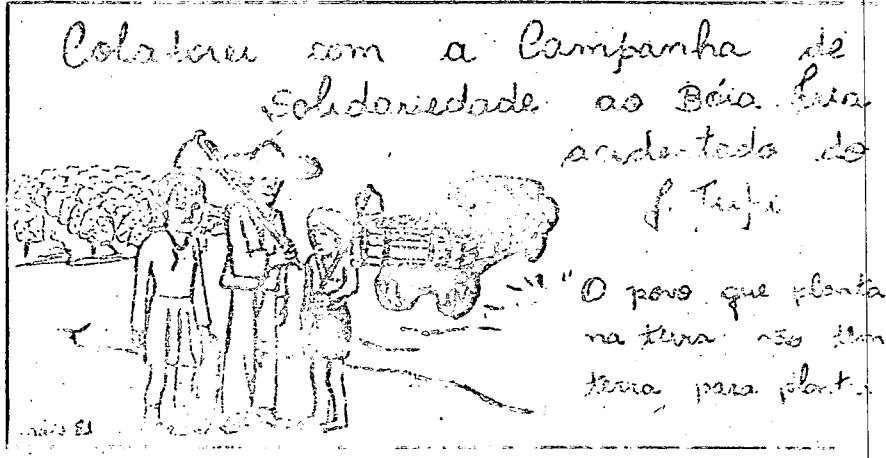 Colaborei com a Campanha de
Solidariedade ao Bóia Fria
acidentado do
J. Tupi
"O povo que planta
na terra não tem
terra para plantar
maio 81